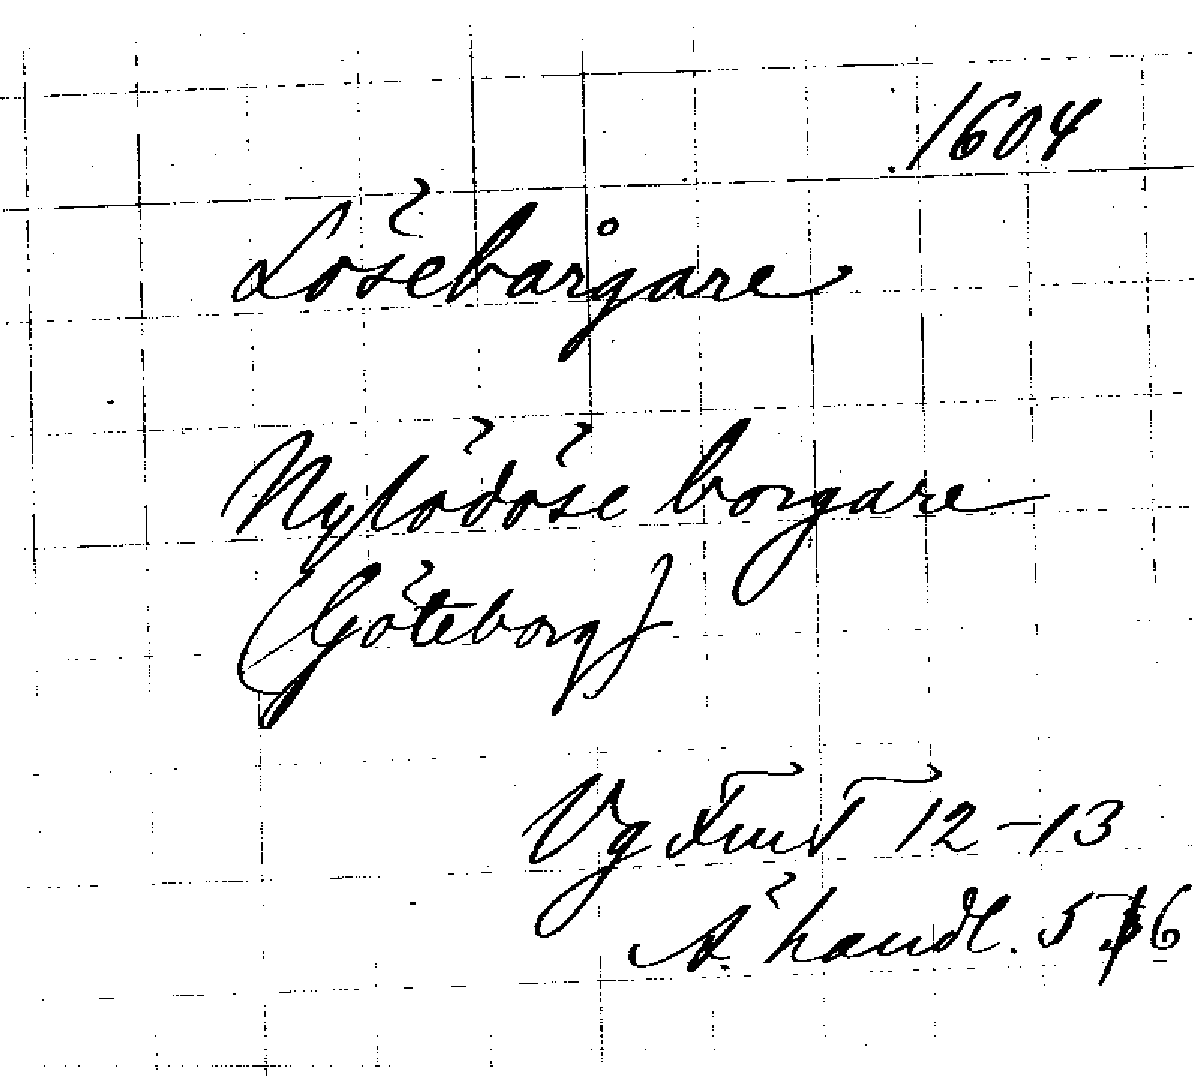 1604
Lösebårgare
Nylödöse borgare
(Göteborg)
Vg FmT 12-13
handl. 5